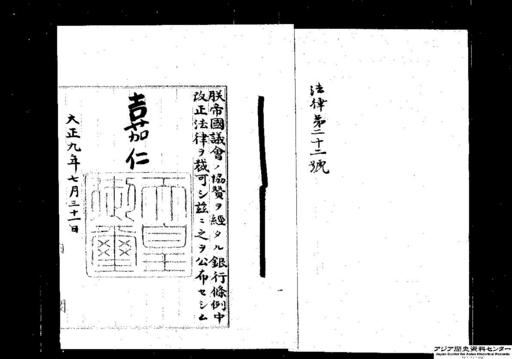 法律第二十二號
朕帝國議會ノ協賛ヲ經タル銀行條例中
改正法律ヲ裁可シ茲ニ之ヲ公布セシム
嘉仁
天皇御璽
大正九年七月三十一日
アジア歴史資料センター
Japan Center for Asian Historical Records